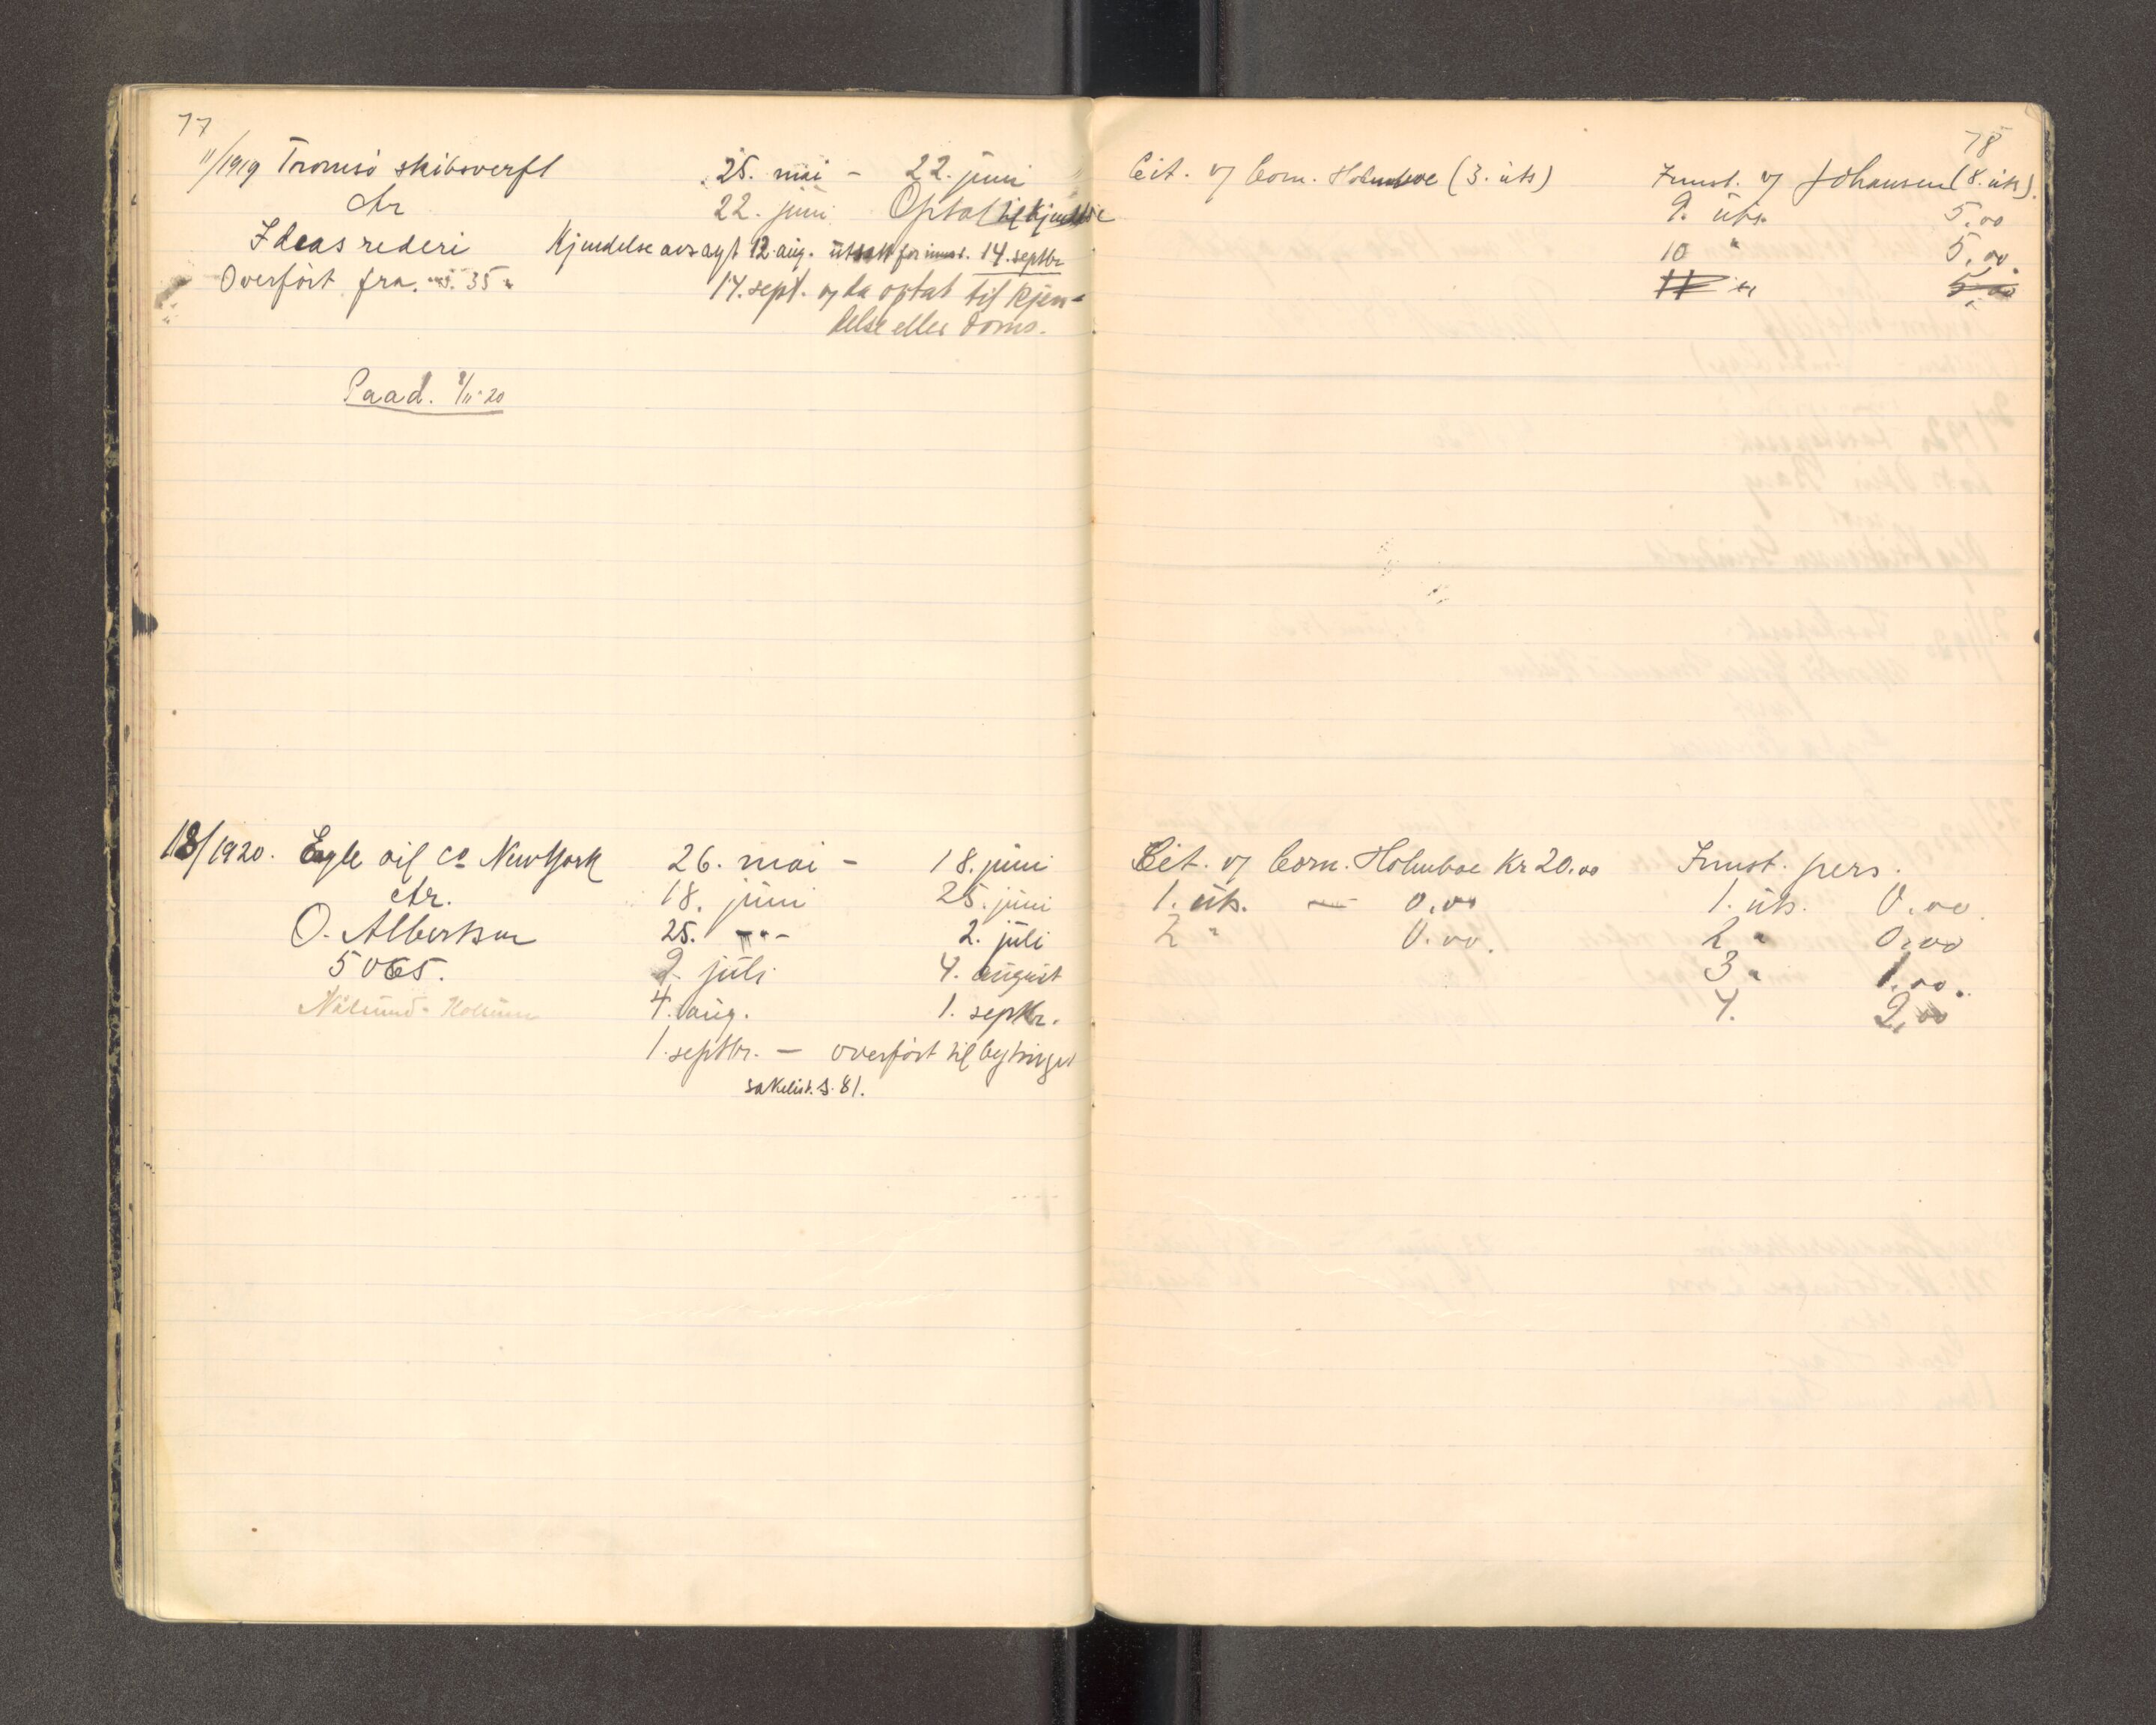 77
11/1919 Tromsö skibsverft 25. mai - 22. juni
ctr 22. juni Optat til kjendelse
Ideas rederi Kjendelse avsagt 12. aug. utsatt for innst. 14. septbr
Overfört fra. s. 35
14. sept. og da optat til kjen-
delse eller doms.
Paad. 8/11-20
18/1920. Eagle oil Co New York 26. mai - 18. juni
ctr. 18. juni 25. juni
O. Albertsen 25. -"- 2. juli
5065. 2. juli 4. august
4. aug. 1. septbr.
1. septbr. - overfört til bytingets
sakelist. s. 81.
78
Cit. v/ Corn. Holmboe (3. uts) Innst. v/ Johansen (8. uts).
9. uts. 5.00
10 " 5.00.
11 " 5.00
Cit. v/ Corn. Holmboe Kr 20.00 Innst. pers.
1. uts. - 0.00 1. uts. 0.00.
2 " 0.00. 2 " 0.00
3 " 1.00.
4. 2,00